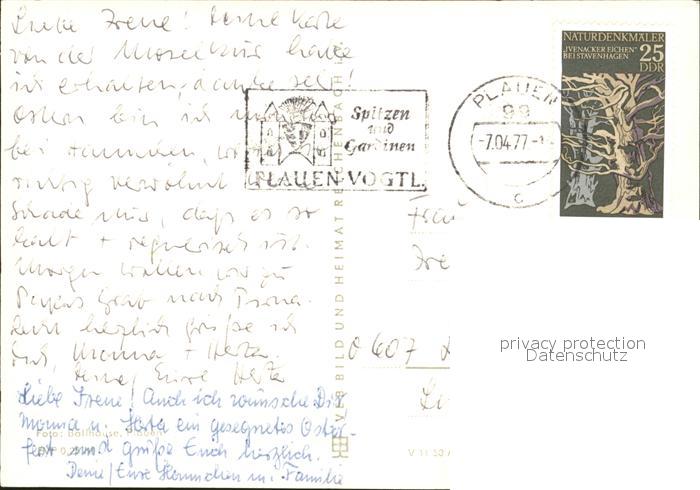 Liebe Irene! Deine Karte
von der Moseltour habe
ich erhalten, danke sehr!
Ostern bin ich nun
bei Hannchen,
richtig verwöhnt
Schade nur, daß es so
kalt + regnerisch ist.
Morgen wollen wir zu
Papas Grab nach Pirna.
Recht herzlich grüße ich
Dich, Mama + Herta.
Deine / Eure Herta
Liebe Irene! Auch ich wünsche Dir,
Mama u. Herta ein gesegnetes Oster-
fest und grüße Euch herzlich.
Deine / Eure Hannchen u. Familie
Foto: Ballhause, Plauen
VEB BILD UND HEIMAT REICHENBACH
V 11 50
Spitzen
und
Gardinen
PLAUEN VOGTL.
PLAUEN
99
-7.04.77
c
NATURDENKMÄLER
„IVENACKER EICHEN"
BEI STAVENHAGEN
25
DDR
Frau
Ire
607
privacy protection
Datenschutz